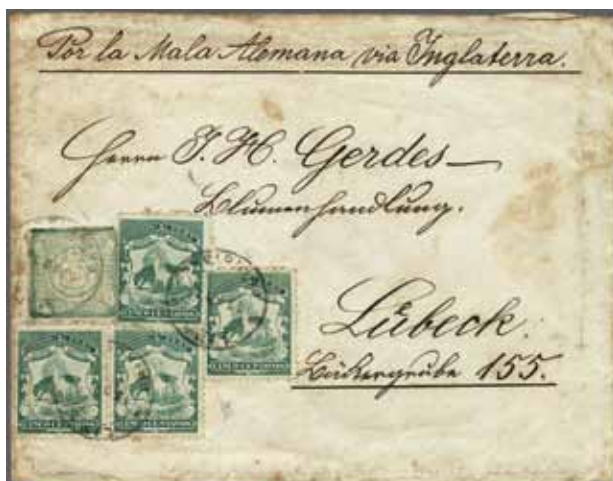 Por la Mala Alemana via Inglaterra.
Herrn J. H. Gerdes
Blumenhandlung.
Lübeck.
Beckergrube 155.